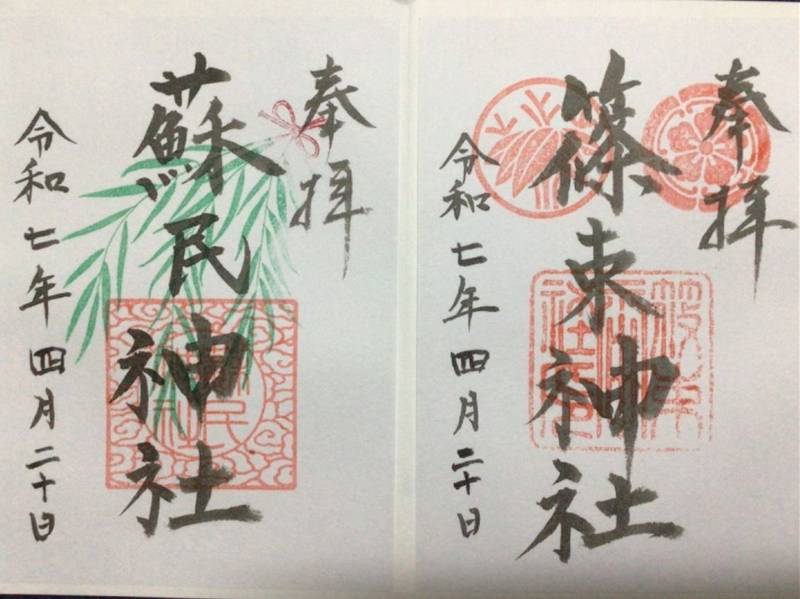 奉拝
篠束神社
令和七年四月二十日
奉拝
蘇民神社
令和七年四月二十日